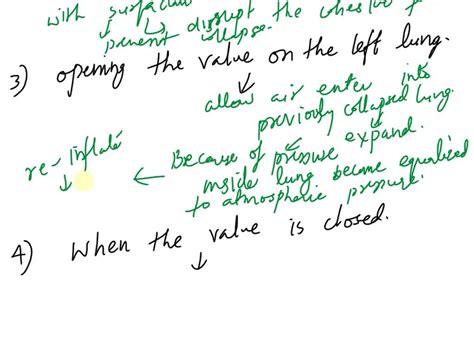 with surfactant
prevent disrupt the cohesive f
collapse.
3) opening the value on the left lung.
allow air enter into
previously collapsed lung.
expand.
re-inflate
Because of pressure
inside lung became equalized
to atmospheric pressure.
4) When the value is closed.